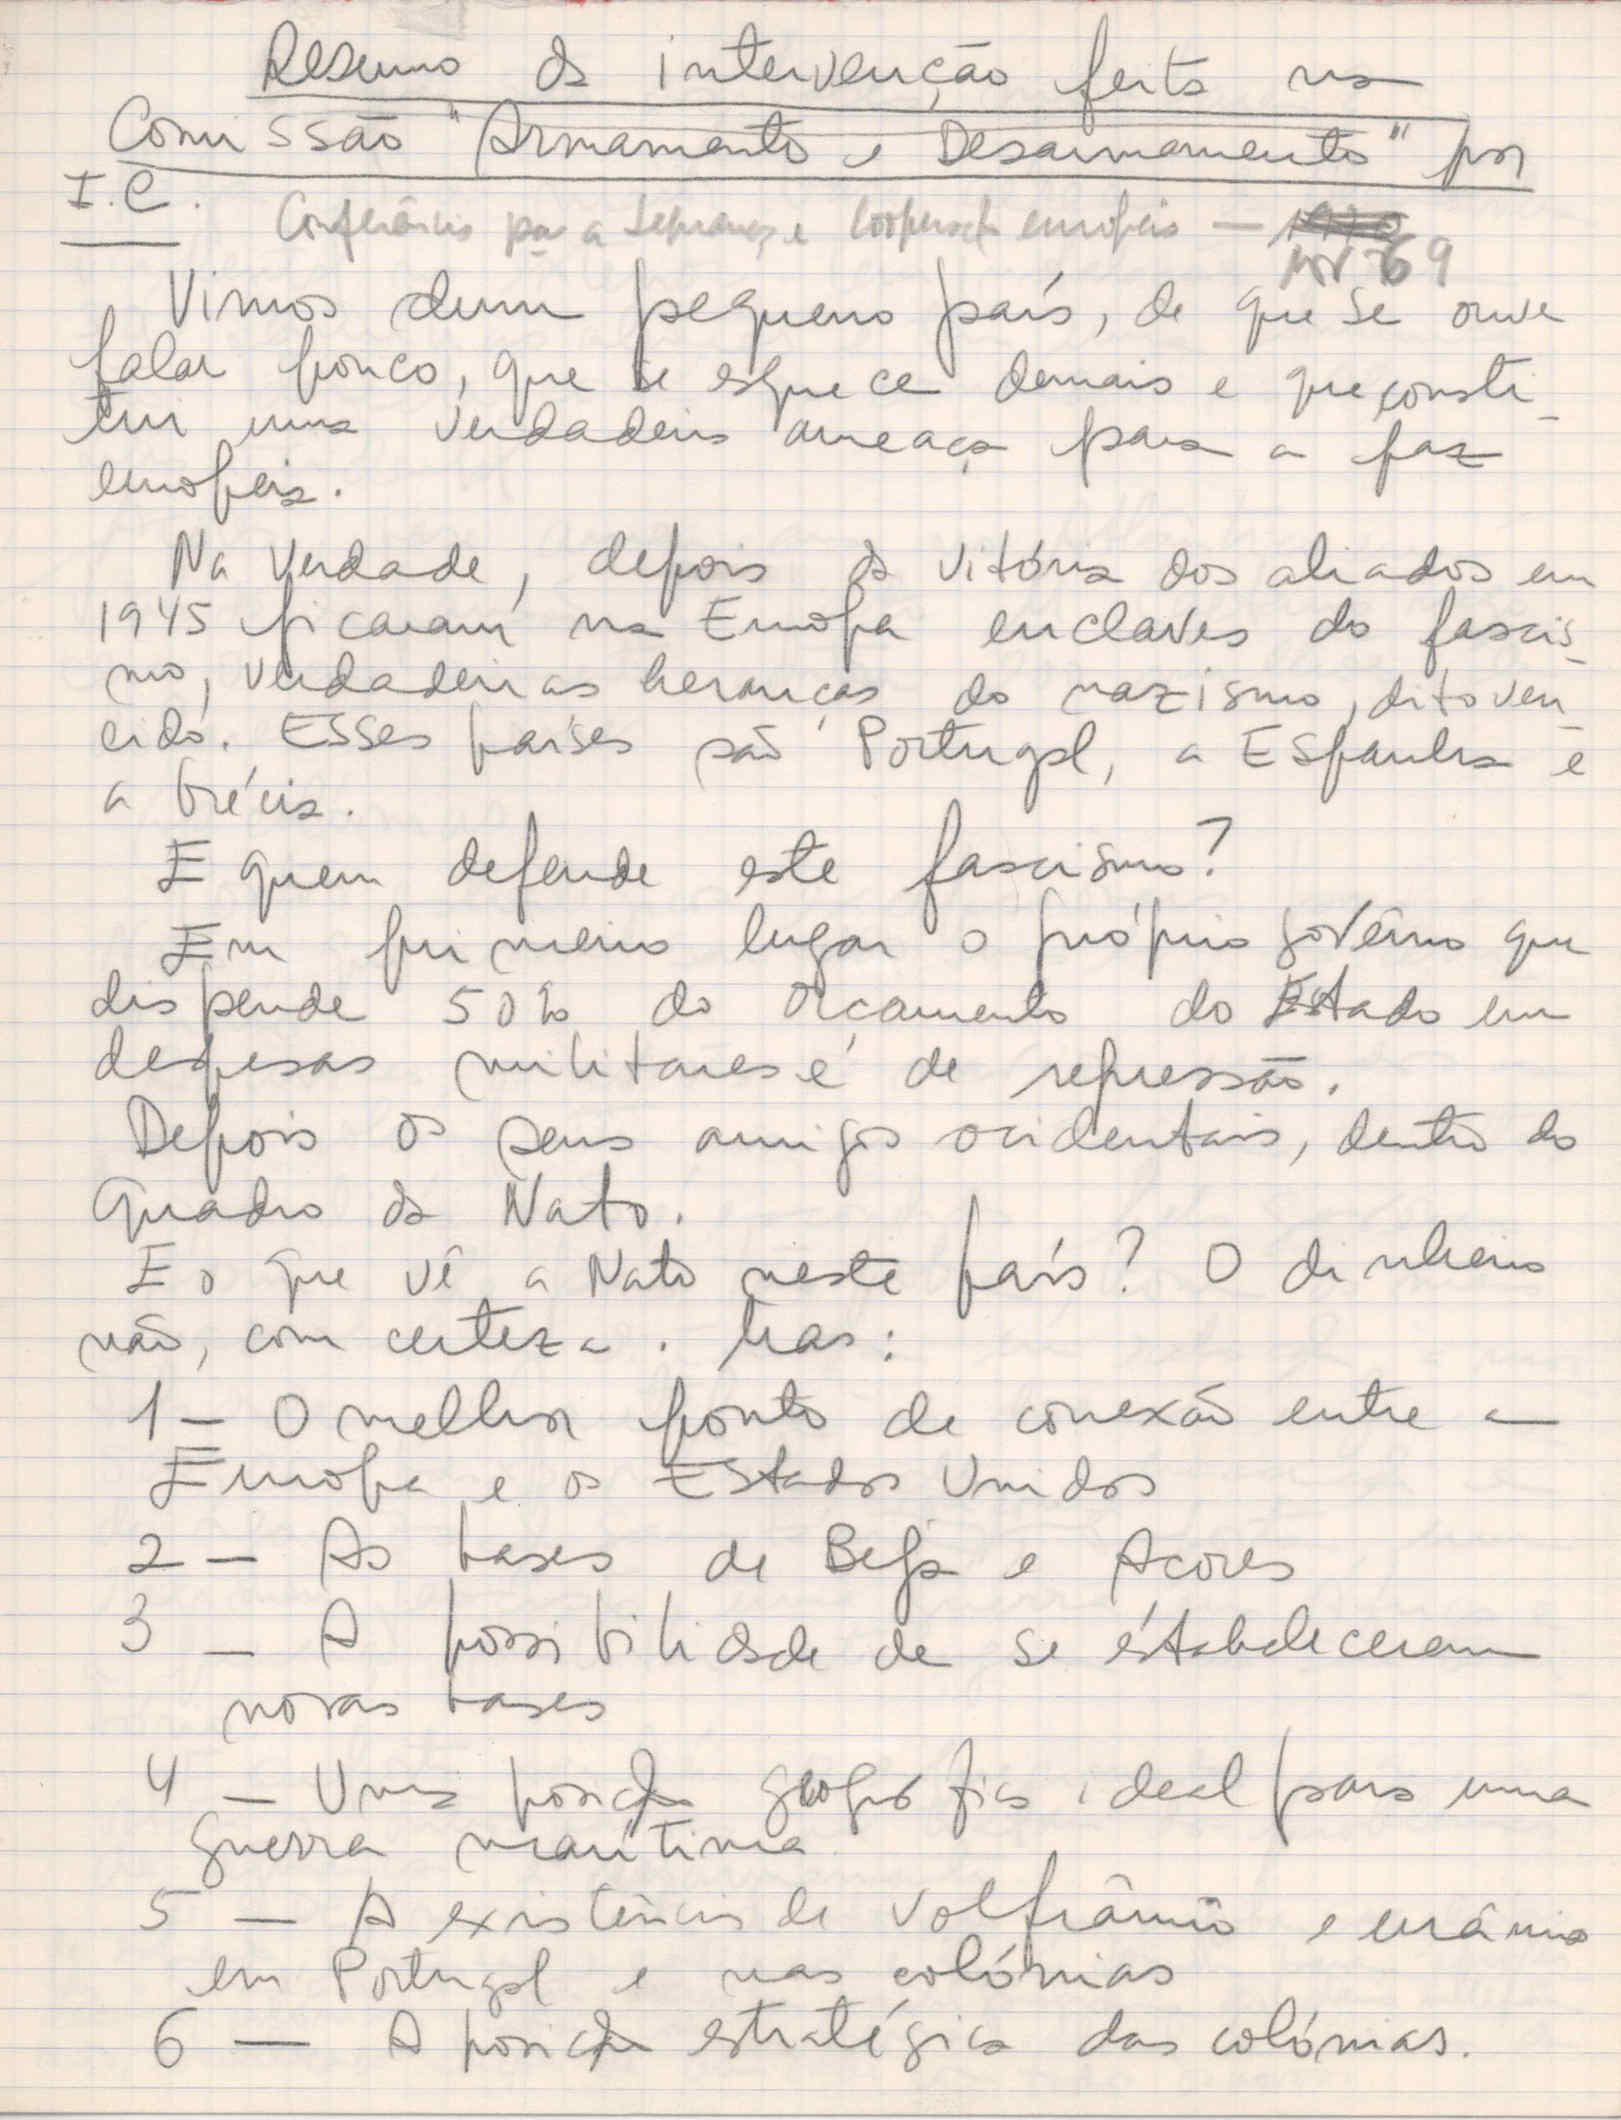 Resumo da intervenção feita na
Comissão "Armamento e Desarmamento" por
I.C.
Conferência para a segurança e cooperação europeia —
Nov 69
Vimos dum pequeno país, de que se ouve
falar pouco, que se esquece demais e que consti-
tui uma verdadeira ameaça para a paz
europeia.
Na verdade, depois da vitória dos aliados em
1945 ficaram na Europa enclaves do fascis-
mo, verdadeiras heranças do nazismo, dito ven-
cido. Esses países são Portugal, a Espanha e
a Grécia.
E quem defende este fascismo?
Em primeiro lugar o próprio govêrno que
dispende 50% do Orçamento do Estado em
despesas militares e de repressão.
Depois os seus amigos ocidentais, dentro do
quadro da Nato.
E o que vê a Nato neste país? O dinheiro
não, com certeza. Mas:
1 — O melhor ponto de conexão entre a
Europa e os Estados Unidos
2 — As bases de Beja e Açores
3 — A possibilidade de se estabelecerem
novas bases
4 — Uma posição geográfica ideal para uma
guerra marítima
5 — A existência de volfrâmio e urânio
em Portugal e nas colónias
6 — A posição estratégica das colónias.